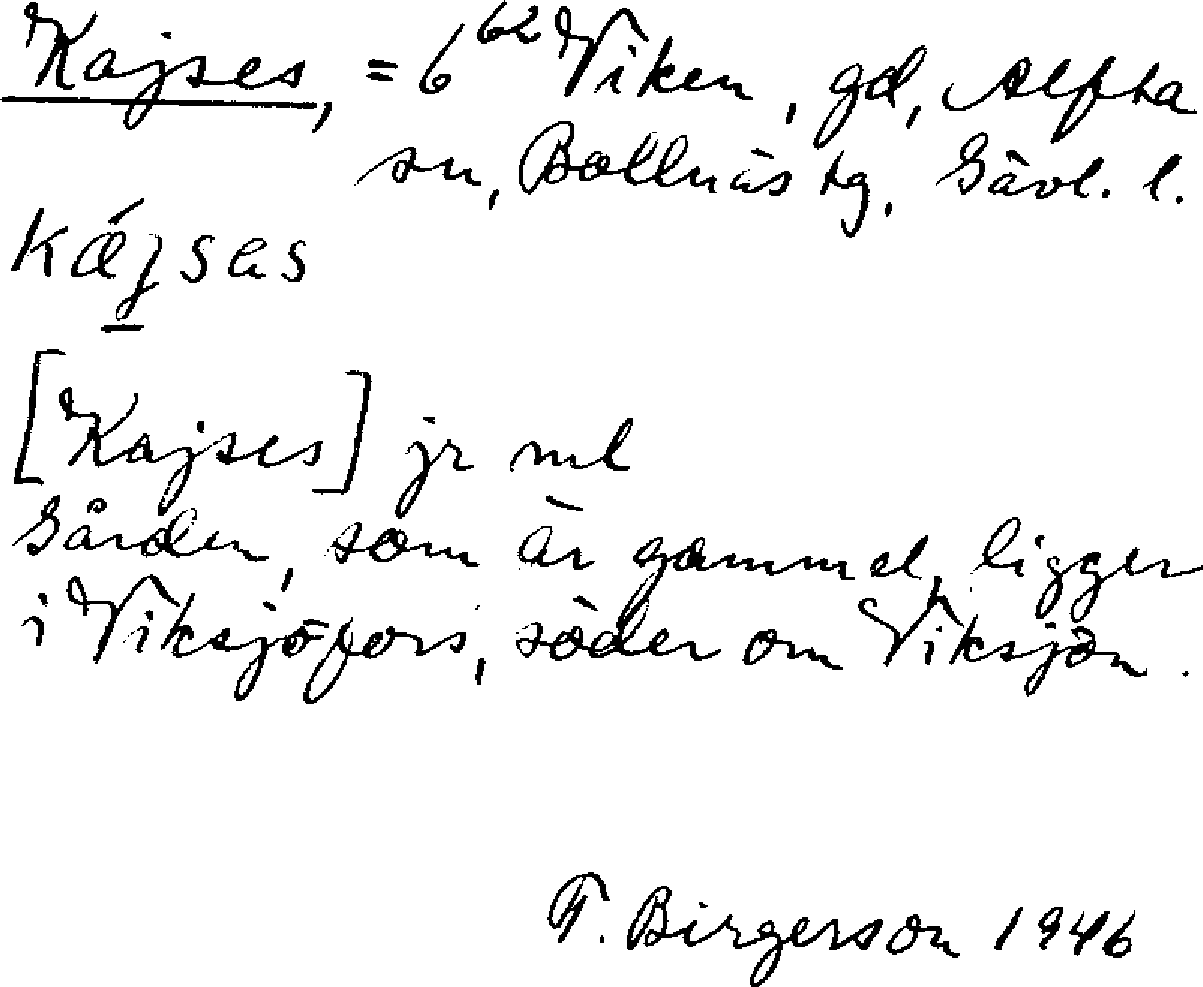 Kajses, = 6⁶² Viken, gd, Alfta
sn, Bollnäs tg, Gävl. l.
kájsas
[Kajses] jr ml
Gården, som är gammal, ligger
i Viksjöfors, söder om Viksjön.
T. Birgerson 1946